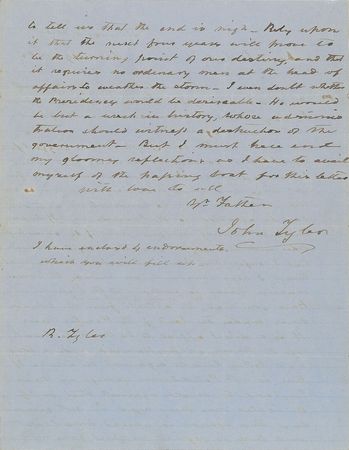 to tell us that the end is nigh - Rely upon
it that the next four years will prove to
be the turning point of our destiny, and that
it requires no ordinary man at the head of
affairs to weather the storm - I even doubt whether
the Presidency would be desirable - He would
be but a wreck in history, whose adminis
tration should witness a destruction of the
government - But I must here end
my gloomy reflections, as I have to avail
myself of the passing boat for this letter
with love to all
Yr Father
John Tyler
I have enclosed 4 endorsements
which you will fill up.
R. Tyler